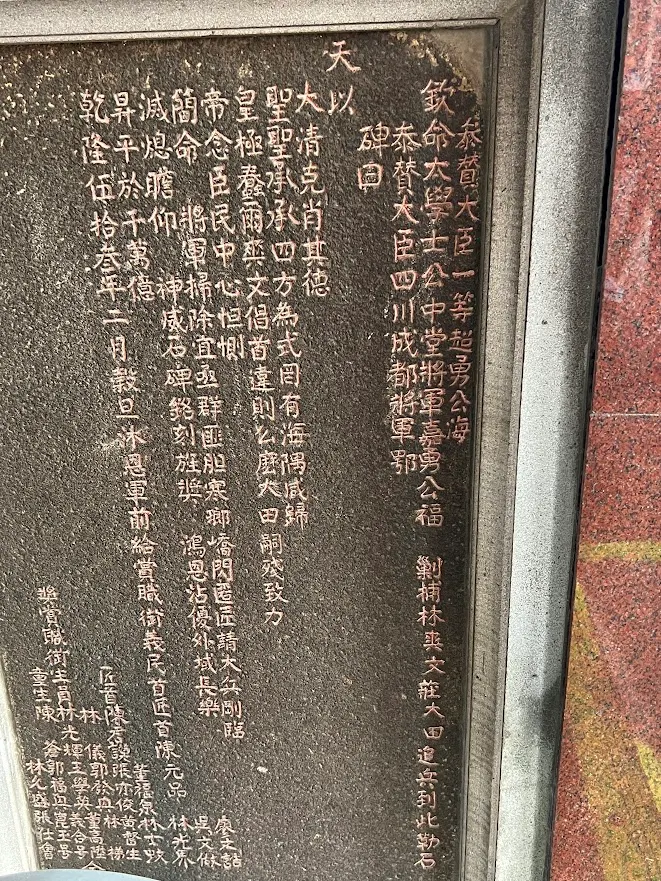 叅贊大臣一等超勇公海
欽命大學士公中堂將軍嘉勇公福 剿捕林爽文莊大田追兵到此勒石
叅贊大臣四川成都將軍鄂
碑曰
天以
大清克肖其德
聖聖承承四方為式罔有海隅咸歸
皇極蠢爾爽文倡首違則么麼大田嗣殘致力
帝念臣民中心怛惻
簡命 將軍掃除宜亟群匪胆寒瑯嶠閃匿匠請大兵剛臨
滅熄瞻仰 神威石碑銘刻旌奬 鴻恩沾優外域長樂
昇平於千萬億
乾隆伍拾叁年二月穀旦沐恩軍前給賞職銜義民首匠首陳元品
廖文喆
吳文
林光
董福 林士
匠首陳 張亦俊黃
林 儀郭 林
奬賞職銜生員林光 王學英義合号
童生陳
林 盛張仕會